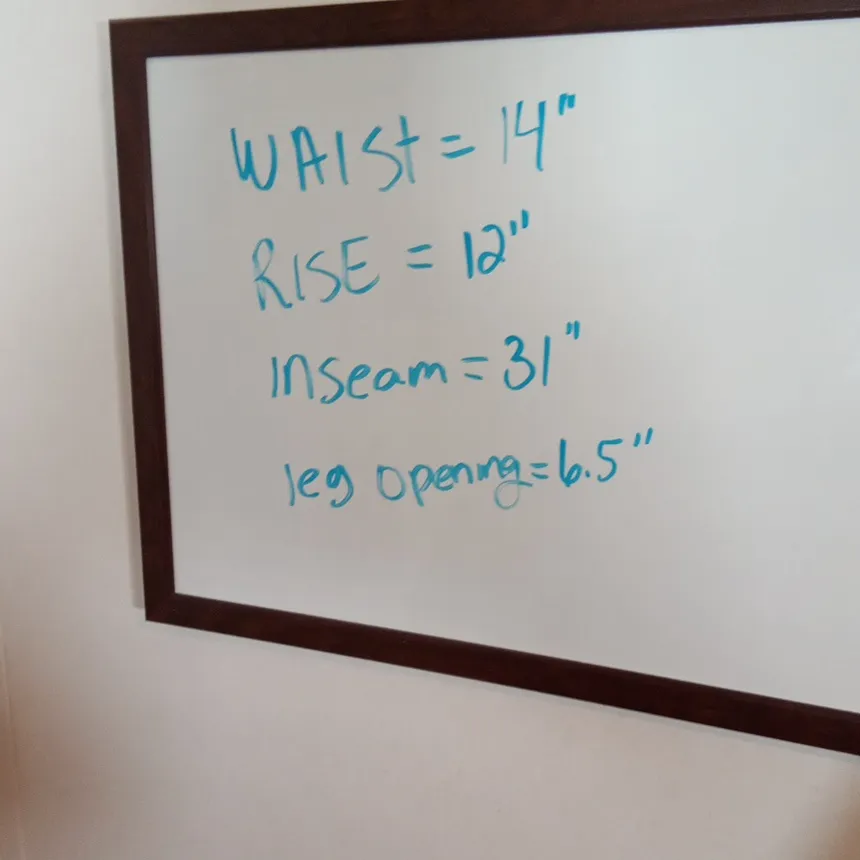 WAISt = 14"
RISE = 12"
inseam = 31"
leg opening = 6.5"